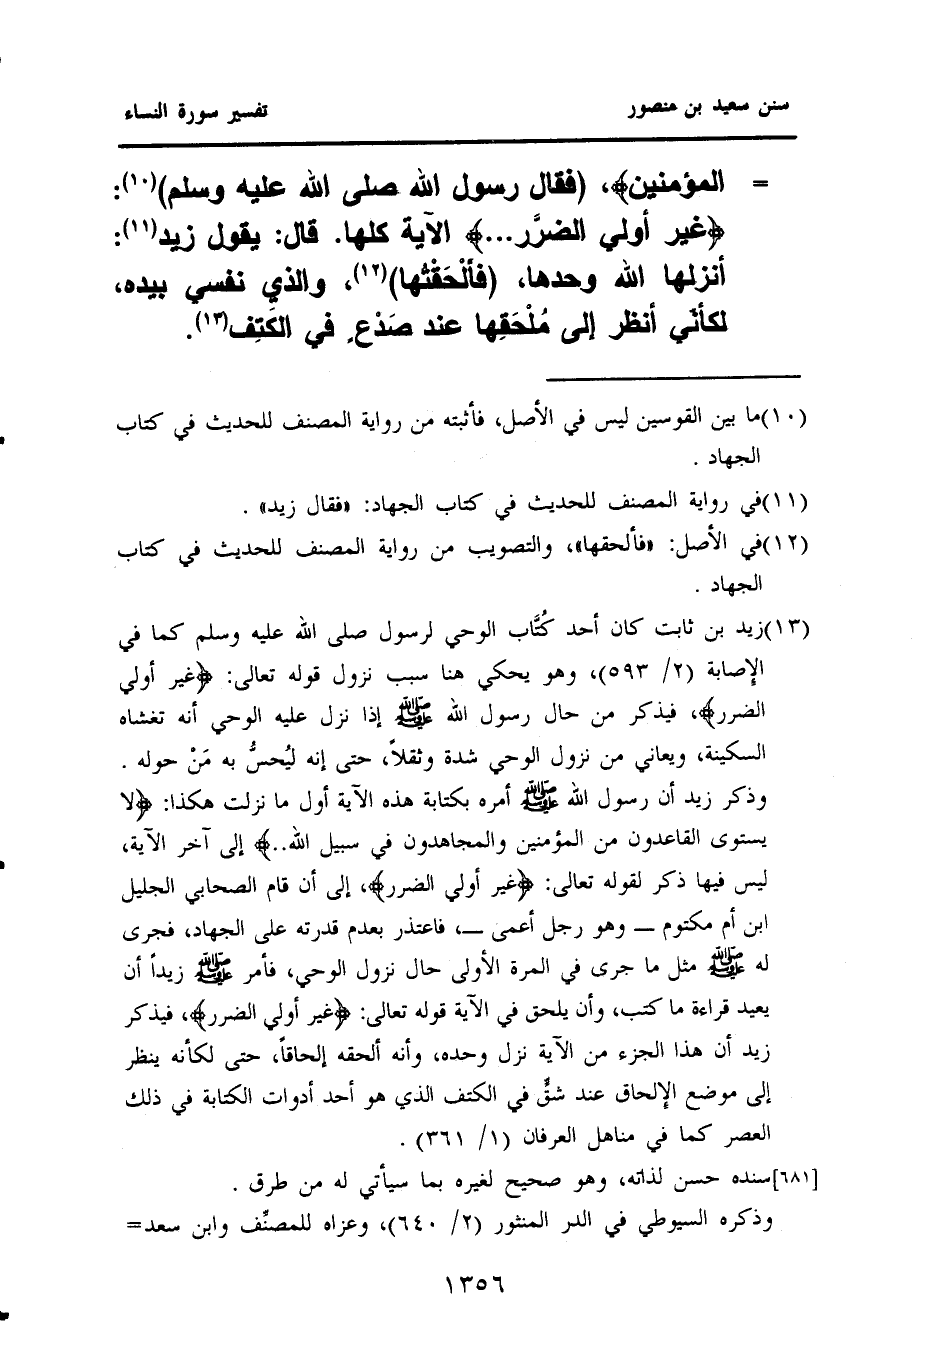 سنن سعيد بن منصور تفسير سورة النساء
= المؤمنين﴾، (فقال رسول الله صلى الله عليه وسلم)(١٠):
﴿غير أولي الضَّرَر...﴾ الآية كلها. قال: يقول زيد(١١):
أنزلها الله وحدها، (فألْحَقْتُها)(١٢)، والذي نفسي بيده،
لكأنّي أنظر إلى مُلْحَقِها عند صَدْعٍ في الكَتِف(١٣).
(١٠)ما بين القوسين ليس في الأصل، فأثبته من رواية المصنف للحديث في كتاب
الجهاد .
(١١)في رواية المصنف للحديث في كتاب الجهاد: «فقال زيد» .
(١٢)في الأصل: «فألحقها»، والتصويب من رواية المصنف للحديث في كتاب
الجهاد .
(١٣)زيد بن ثابت كان أحد كُتَّاب الوحي لرسول صلى الله عليه وسلم كما في
الإصابة (٢/ ٥٩٣)، وهو يحكي هنا سبب نزول قوله تعالى: ﴿غير أولي
الضرر﴾، فيذكر من حال رسول الله ﷺ إذا نزل عليه الوحي أنه تغشاه
السكينة، ويعاني من نزول الوحي شدة وثقلاً، حتى إنه ليُحسُّ به مَنْ حوله .
وذكر زيد أن رسول الله ﷺ أمره بكتابة هذه الآية أول ما نزلت هكذا: ﴿لا
يستوى القاعدون من المؤمنين والمجاهدون في سبيل الله..﴾ إلى آخر الآية،
ليس فيها ذكر لقوله تعالى: ﴿غير أولي الضرر﴾، إلى أن قام الصحابي الجليل
ابن أم مكتوم ــ وهو رجل أعمى ــ، فاعتذر بعدم قدرته على الجهاد، فجرى
له ﷺ مثل ما جرى في المرة الأولى حال نزول الوحي، فأمر ﷺ زيداً أن
يعيد قراءة ما كتب، وأن يلحق في الآية قوله تعالى: ﴿غير أولي الضرر﴾، فيذكر
زيد أن هذا الجزء من الآية نزل وحده، وأنه ألحقه إلحاقاً، حتى لكأنه ينظر
إلى موضع الإلحاق عند شقٍّ في الكتف الذي هو أحد أدوات الكتابة في ذلك
العصر كما في مناهل العرفان (١/ ٣٦١) .
[٦٨١]سنده حسن لذاته، وهو صحيح لغيره بما سيأتي له من طرق .
وذكره السيوطي في الدر المنثور (٢/ ٦٤٠)، وعزاه للمصنِّف وابن سعد=
١٣٥٦